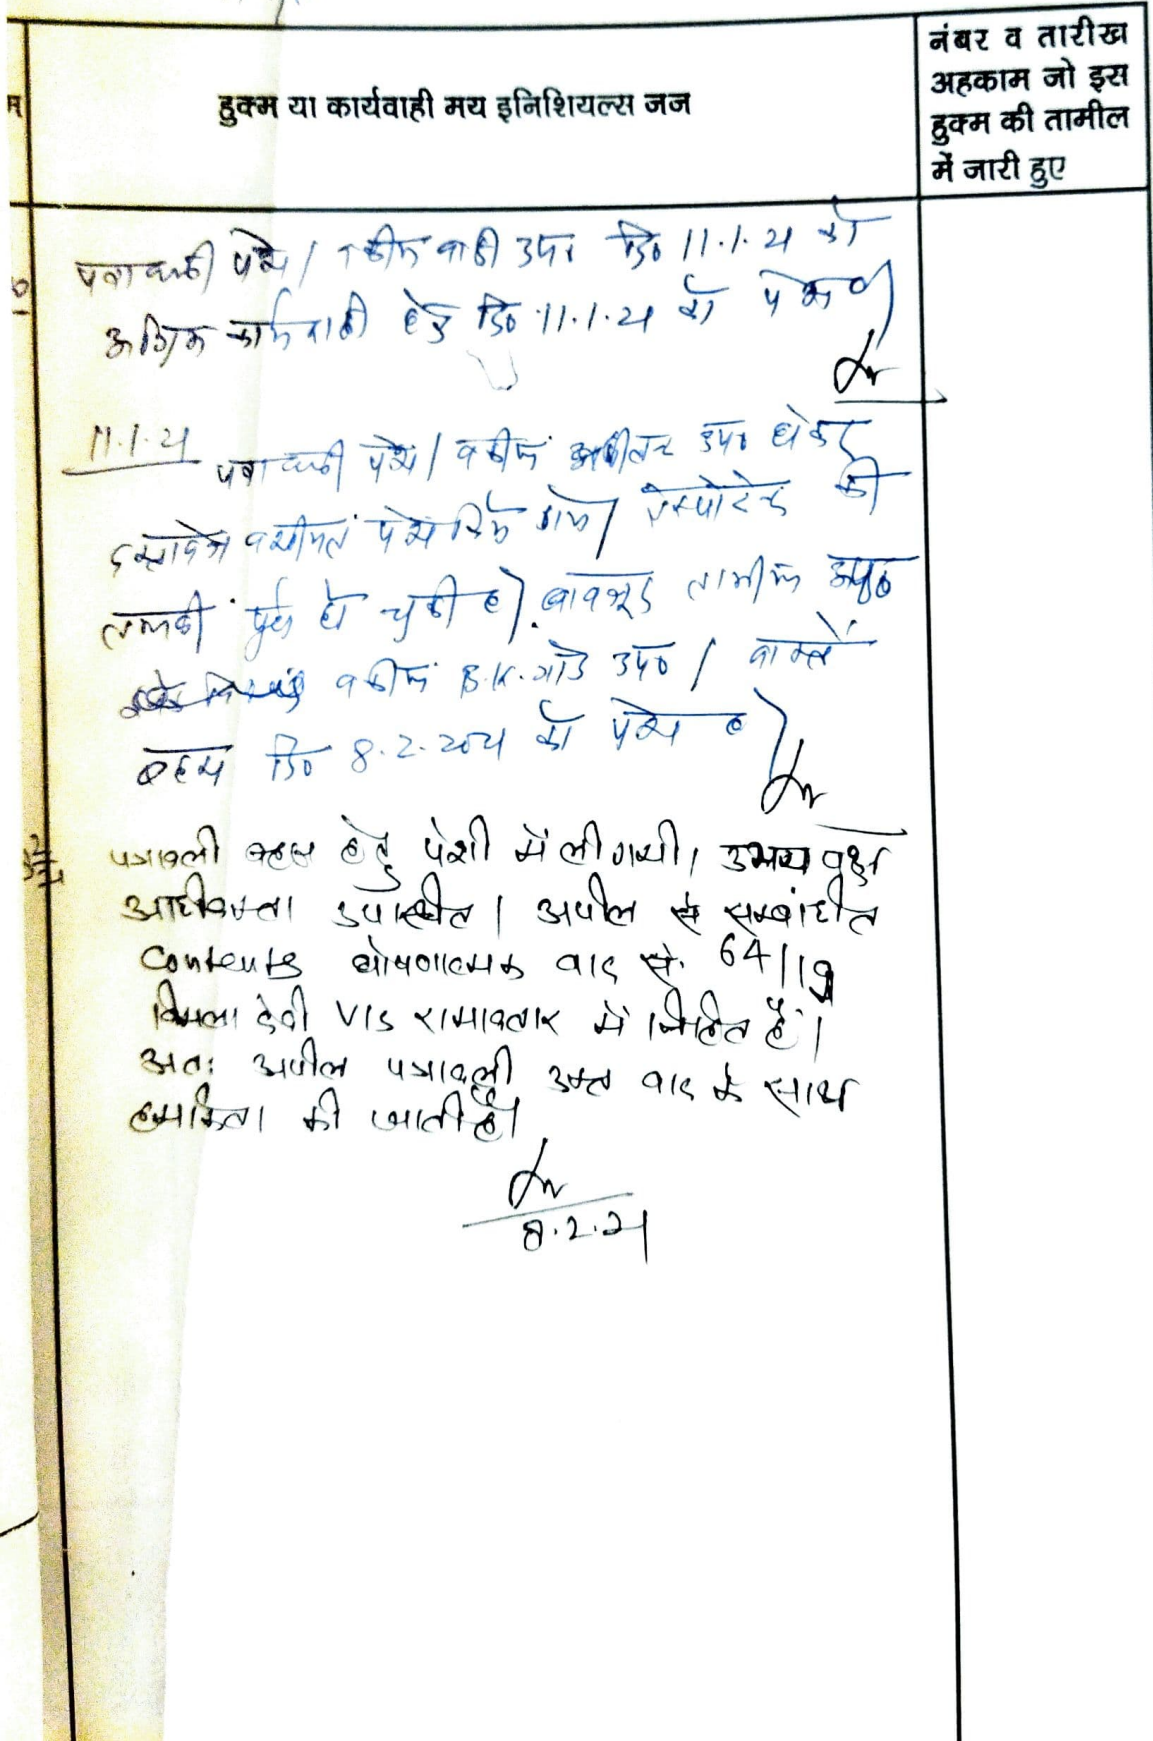 हुक्म या कार्यवाही मय इनिशियल्स जज
नंबर व तारीख
अहकाम जो इस
हुक्म की तामील
में जारी हुए
पत्रावली पेश। वकील वादी उप० दि० 11.1.21 को
कार्यवाही हेतु दि० 11.1.21 को पेश हो।
11.1.21
पत्रावली पेश। वकील अपीलांट उप० होकर
दस्तावेज पेश किये गये। रेस्पोडेन्ट की
तलबी पूर्ण हो चुकी है। बावजूद तामील अनु०
वकील B.K. उप०। वास्ते
बहस दि० 8.2.2021 को पेश हो।
पत्रावली बहस हेतु पेशी में ली गयी। उभय पक्ष
अधिवक्ता उपस्थित। अपील से सम्बंधित
Contents घोषणात्मक वाद सं. 64/19
विमला देवी V/S रामावतार में निहित है।
अतः अपील पत्रावली उक्त वाद के साथ
हमकिता की जाती है।
8.2.21